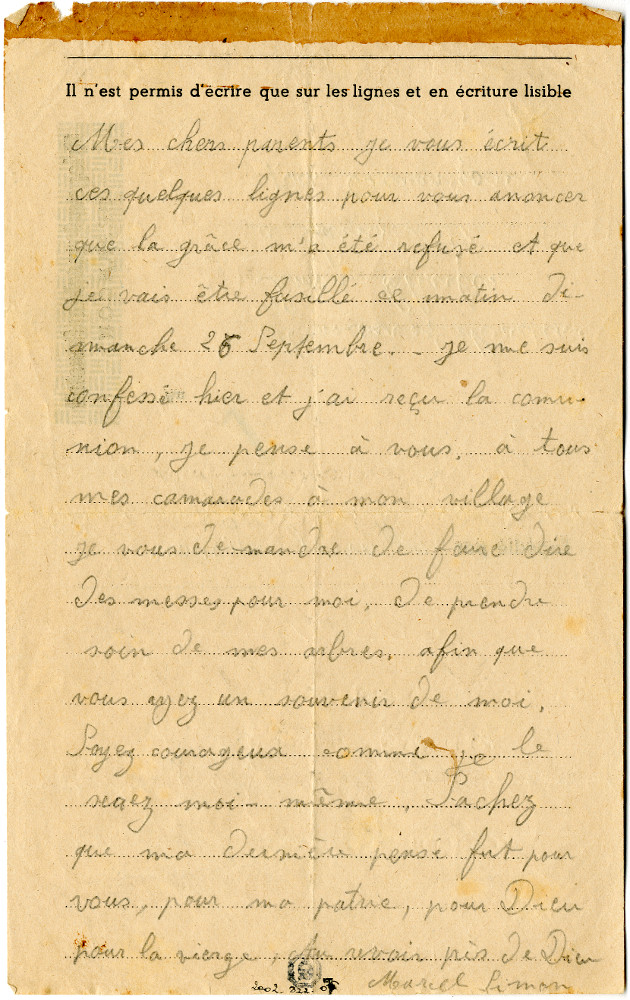 Il n'est permis d'écrire que sur les lignes et en écriture lisible
Mes chers parents je vous écrit
ces quelques lignes pour vous anoncer
que la grâce m'a été refusé et que
je vais être fusillé ce matin di-
manche 26 Septembre. - je me suis
confessé hier et j'ai reçu la comu-
nion, je pense à vous, à tous
mes camarades à mon village
je vous demandre de faire dire
des messes, pour moi, de prendre
soin de mes arbres, afin que
vous ayez un souvenir de moi.
Soyez courageux comme je le
serez moi-même, Sachez
que ma dernière pensé fut pour
vous, pour ma patrie, pour Dieu
pour la vierge, Au revoir près de Dieu
Marcel Simon
2002. 822.